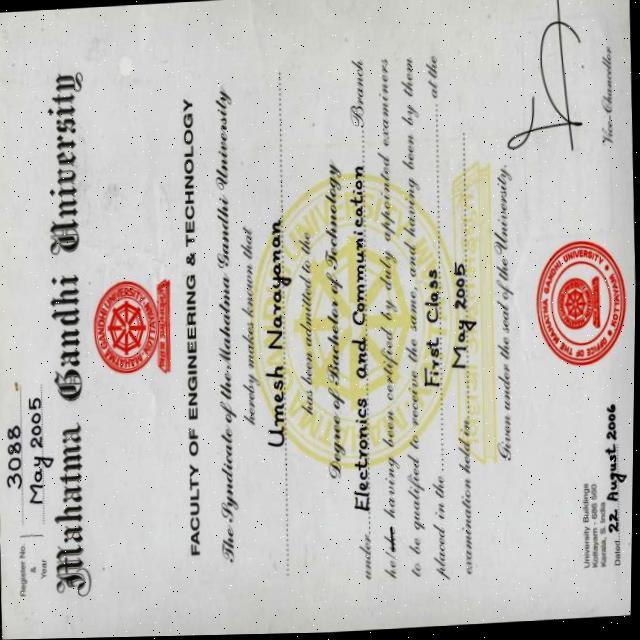 Register No. & Year } 3088
May 2005
Mahatma Gandhi University
MAHATMA GANDHI UNIVERSITY
FACULTY OF ENGINEERING & TECHNOLOGY
The Syndicate of the Mahatma Gandhi University
hereby makes known that
Umesh Narayanan
has been admitted to the
Degree of Bachelor of Technology
under Electronics and Communication Branch
he/she having been certified by duly appointed examiners
to be qualified to receive the same, and having been by them
placed in the First Class at the
examination held in May 2005
Given under the seal of the University
University Buildings
Kottayam - 686 560
Kerala, S. India
Dated 22 August 2006
OFFICE OF THE MAHATMA GANDHI UNIVERSITY
Vice-Chancellor